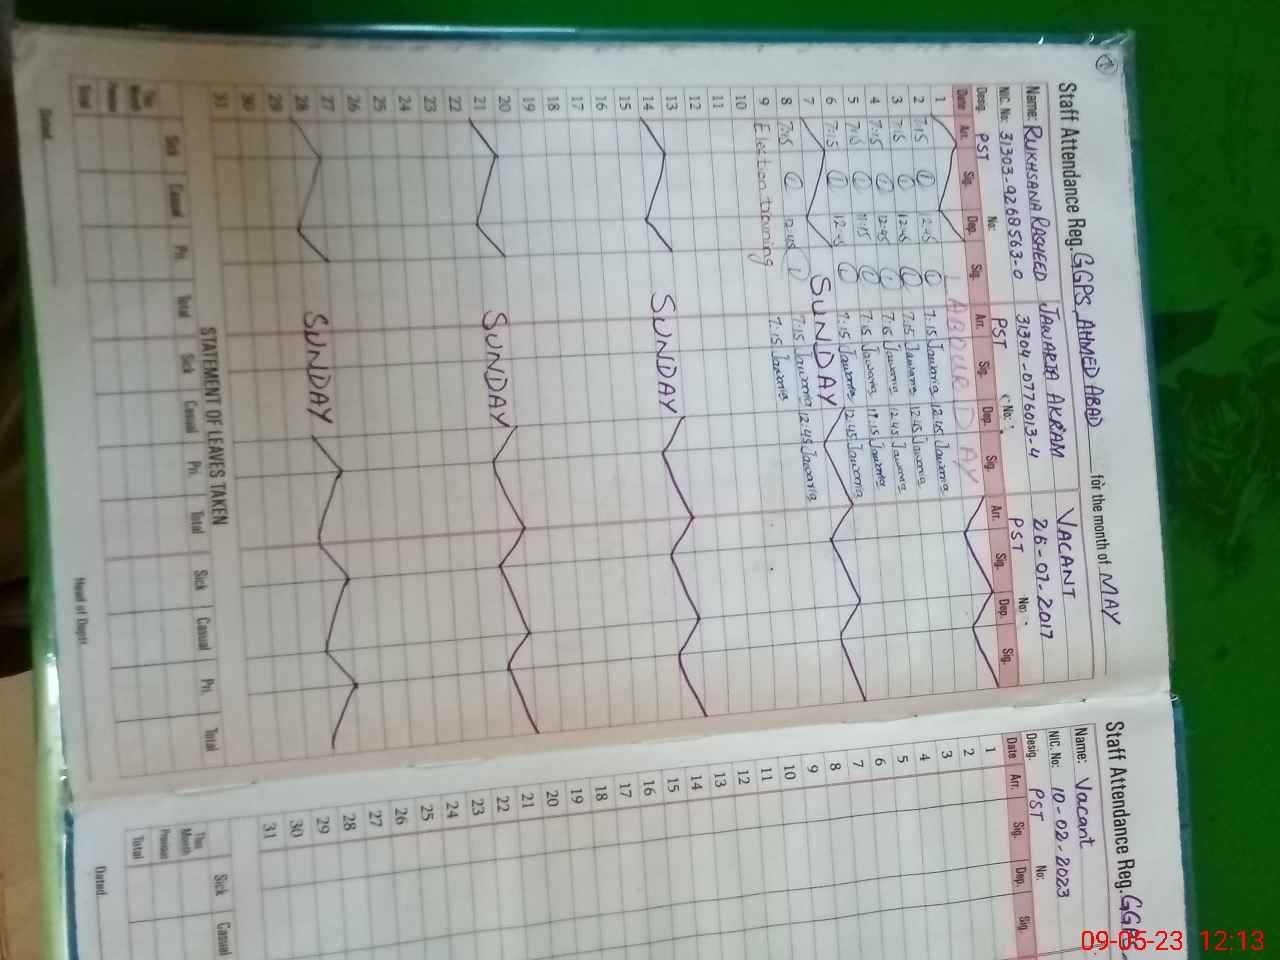 1
Staff Attendance Reg. GGPS, AHMED ABAD for the month of MAY
Name: RUKHSANA RASHEED JAWARIA AKRAM VACANT
NIC. No: 31303-9268563-0 31304-0776013-4 26-07-2017
Desig. PST No: PST No: PST No:
Date Arr. Sig. Dep. Sig. Arr. Sig. Dep. Sig. Arr. Sig. Dep. Sig.
1 LABOUR DAY
2 7:15 2:45 7:15 Jawaria 12:45 Jawaria
3 7:15 12:45 7:15 Jawaria 12:45 Jawaria
4 7:15 12:45 7:15 Jawaria 12:45 Jawaria
5 7:15 11:15 7:15 Jawaria 11:15 Jawaria
6 7:15 12:45 7:15 Jawaria 12:45 Jawaria
7 SUNDAY
8 7:15 12:45 7:15 Jawaria 12:45 Jawaria
9 Election training 7:15 Jawaria
10
11
12
13
14 SUNDAY
15
16
17
18
19
20
21 SUNDAY
22
23
24
25
26
27
28 SUNDAY
29
30
31
STATEMENT OF LEAVES TAKEN
Sick Casual Pri. Total Sick Casual Pri. Total Sick Casual Pri. Total
This Month
Previous
Total
Dated Head of Deptt
Staff Attendance Reg. GGP
Name: Vacant
NIC. No: 10-02-2023
Desig. PST No:
Date Arr. Sig. Dep. Sig.
1
2
3
4
5
6
7
8
9
10
11
12
13
14
15
16
17
18
19
20
21
22
23
24
25
26
27
28
29
30
31
Sick Casual
This Month
Previous
Total
Dated
09-05-23 12:13